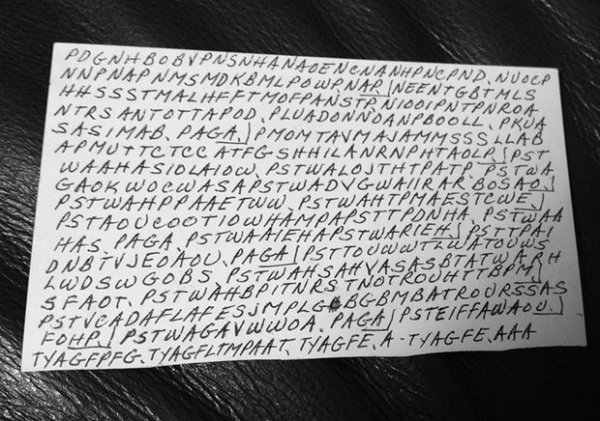 PDGNHBOBVPNSNHANAOENCNANHPNCPND. NUOCP
NNPNAPNMSMDKBMLPOWP, NAP, NEENTGBTMLS
HHSSSTMALHFFTMOFPANSTP, NIOOIPNTPNROA
NTRSANTOTTAPOD. PLUADONNOANPBOOLL, PKUA
SASIMAB, PAGA, PMOMTAVMAJAMMSSSLLAB
APMUTTCTCCATFGSHHILANRNPHTAOLP, PST
WAAHASIOLAIOW, PSTWALOJTHTPATP, PSTWA
GAOKWOCWASAPSTWADVGWAIIRARBOSAO,
PSTWAHPPAAETWW, PSTWAHTPMAESTCWE,
PSTAOUCOOTIOWHAMPAPSTTPDNHA, PSTWAA
HAS. PAGA, PSTWAAIEHAPSTWARIEH, PSTTPAI
DNBTVJEOAOU. PAGA, PSTTOUWWTLWATOUWS
LWDSWGOBS, PSTWAHSAHVASASBTATWARH
SFAOT. PSTWAHBPITNRSTNOTROUHTTBPM,
PSTVCADAFLAFESJMPLGBGBMBATROURSSAS
FOHP, PSTWAGAVWWOA. PAGA, PSTEIFFAWAOU,
TYAGFPFG. TYAGFLTMPAAT. TYAGFE, A-TYAGFE, AAA